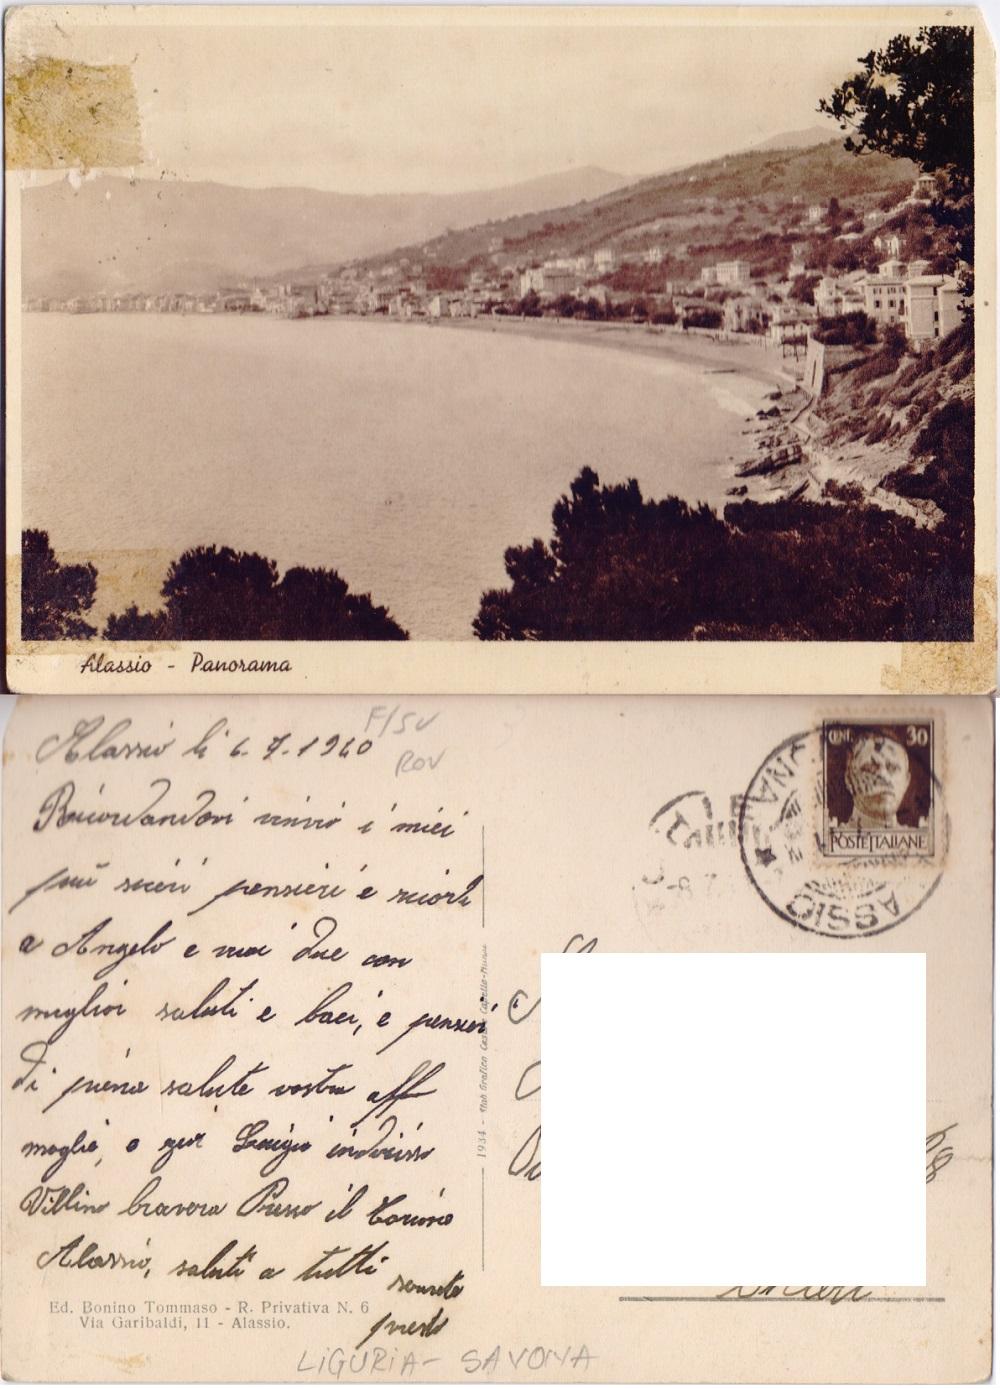 Alassio - Panorama
Alassio li 6-7-1940
F/SV
ROV
CENT. 30
POSTE ITALIANE
Ricordandovi invio i miei
più sceri pensieri e ricordi
a Angelo e voi due con
migliori saluti e baci, e pensieri
di piena salute vostra aff
moglie, e qui Luigi indirisso
Villino Presso il
Alassio, saluti a tutti
presto
1934 - Stab Grafico Cesare Capello
Ed. Bonino Tommaso - R. Privativa N. 6
Via Garibaldi, 11 - Alassio.
LIGURIA - SAVONA